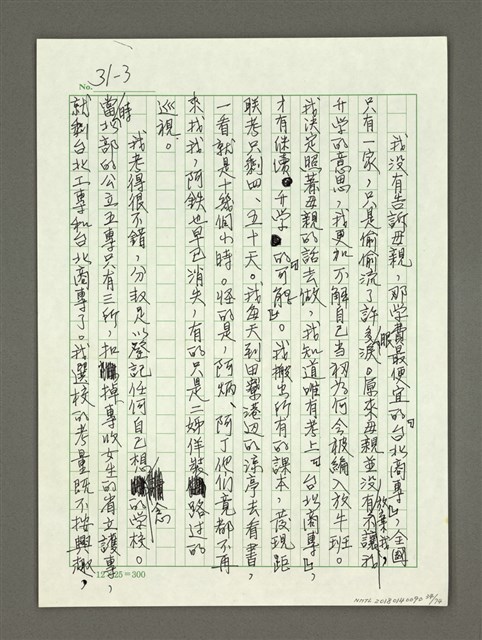 No. 31-3
我没有告訴母親，那学費最便宜的「台北商專」，全國
只有一家，只是偷偷流了許多眼淚。原來母親並没有放棄我，不讓我
升学的意思，我更加不解自己当初为何会被編入放牛班。
我決定照著母親的話去做，我知道唯有考上「台北商專」，
才有继續升学的「可能」。我搬出所有的課本，發現距
联考只剩四、五十天。我每天到田寮港边的涼亭去看書，
一看就是十幾個小時。怪的是，阿炳、阿丁他们竟都不再
來找我，阿鉄也早已消失，有的只是二姊佯裝路过的
巡視。
我考得很不錯，分数足以登記任何自己想念的学校。
當時北部的公立五專只有三所，扣掉專收女生的省立護專，
就剩台北工專和台北商專了。我選校的考量既不按興趣，
12×25=300
NMTL 20180140090 28/74